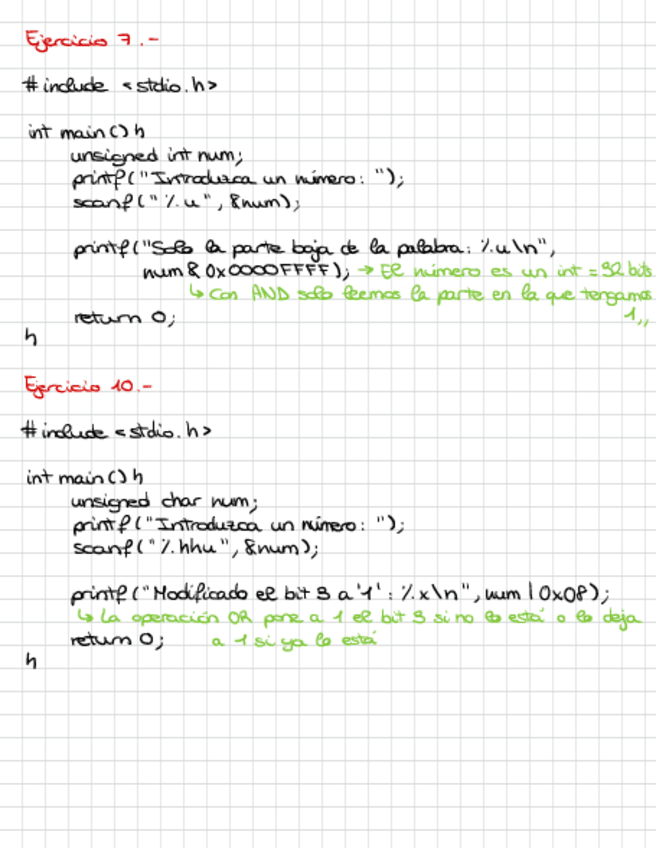 Ejercicio 7.-
#include <stdio.h>
int main(){
unsigned int num;
printf("Introduzca un número: ");
scanf("%u", &num);
printf("Solo la parte baja de la palabra: %u\n",
num & 0x0000FFFF); → El número es un int = 32 bits
↳ Con AND solo leemos la parte en la que tengamos
1,,
return 0;
}
Ejercicio 10.-
#include <stdio.h>
int main(){
unsigned char num;
printf("Introduzca un número: ");
scanf("%hhu", &num);
printf("Modificado el bit 3 a '1': %x\n", num | 0x08);
↳ La operación OR pone a 1 el bit 3 si no lo está o lo deja
return 0; a 1 si ya lo está
}